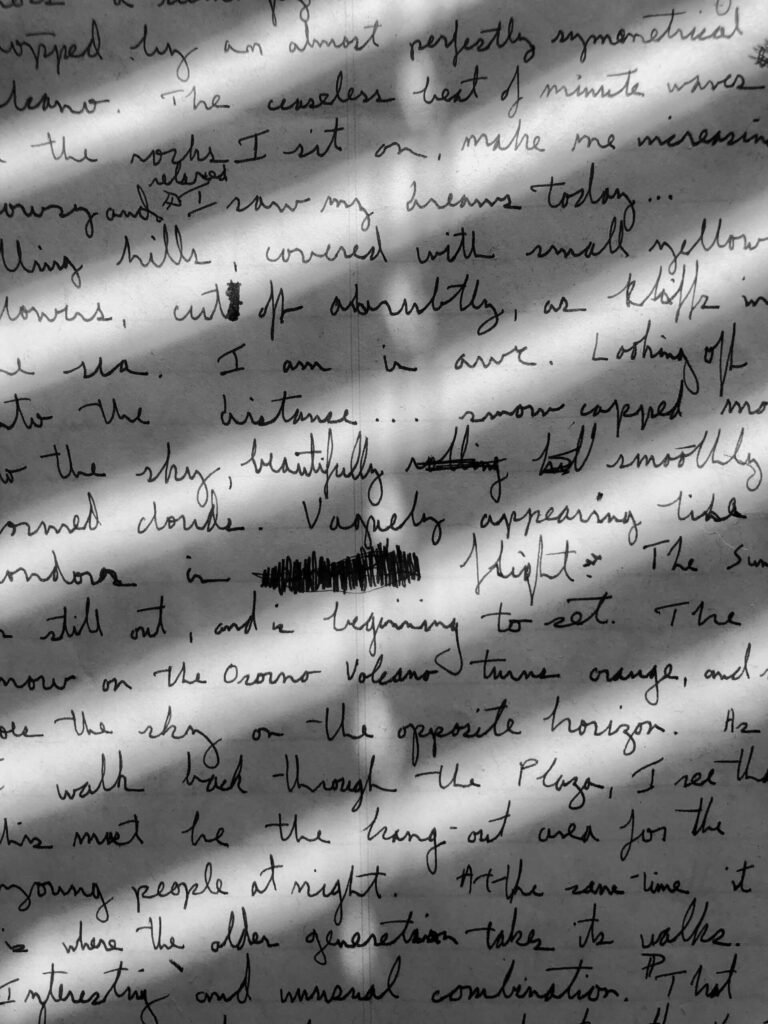 opped by an almost perfectly symmetrical
lcano. The ceaseless beat of minute waves
the rocks I sit on, make me increasin
relaxed
owsy and I saw my dreams today...
lling hills, covered with small yellow
lowers, cut off abrubtly, as kliffs in
he sea. I am in awe. Looking off
nto the distance.... snow capped mo
to the sky, beautifully rolling smoothly
ormed clouds. Vaguely appearing like
ondors in flight. The Sun
is still out, and is beginning to set. The
now on the Osorno Volcano turns orange, and s
oes the sky on the opposite horizon. As
I walk back through the Plaza, I see tha
this must be the hang-out area for the
young people at night. At the same-time it
is where the older generation takes its walks.
Interesting and unusual combination. That